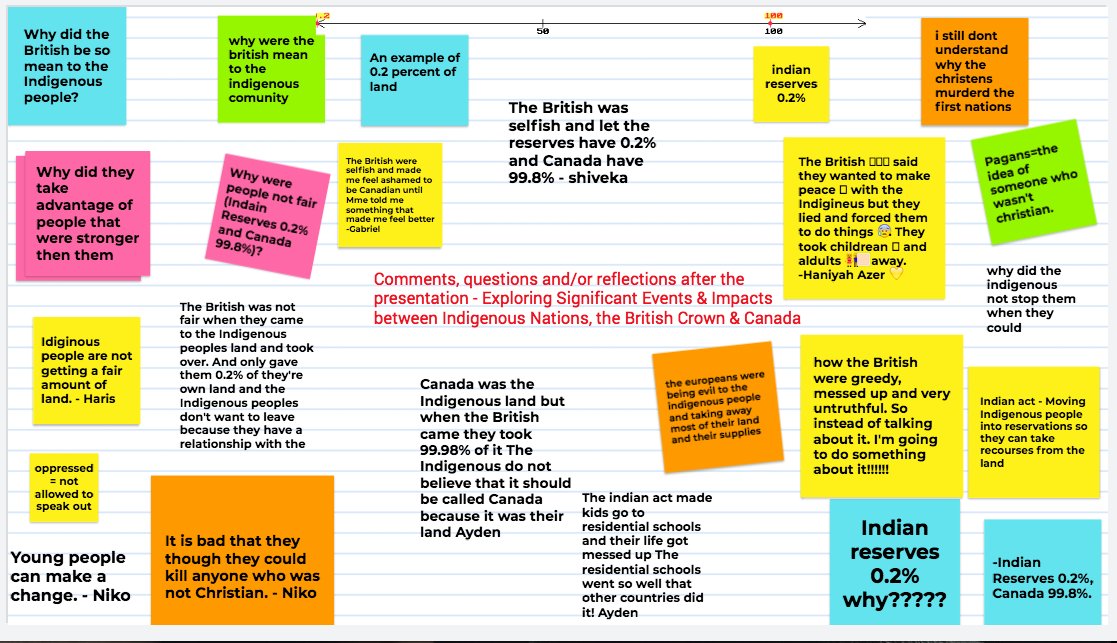 Why did the
British be so
mean to the
Indigenous
people?
why were the
british mean
to the
indigenous
comunity
50
100
100
An example of
0.2 percent of
land
The British was
selfish and let the
reserves have 0.2%
and Canada have
99.8% - shiveka
indian
reserves
0.2%
i still dont
understand
why the
christens
murderd the
first nations
Why did they
take
advantage of
people that
were stronger
then them
Why were
people not fair
(Indain
Reserves 0.2%
and Canada
99.8%)?
The British were
selfish and made
me feel ashamed to
be Canadian until
Mme told me
something that
made me feel better
-Gabriel
The British 􀀀􀀀􀀀 said
they wanted to make
peace 􀀀 with the
Indigineus but they
lied and forced them
to do things 😰 They
took childrean 􀀀 and
aldults away.
-Haniyah Azer 💛
Pagans=the
idea of
someone who
wasn't
christian.
Comments, questions and/or reflections after the
presentation - Exploring Significant Events & Impacts
between Indigenous Nations, the British Crown & Canada
why did the
indigenous
not stop them
when they
could
Idiginous
people are not
getting a fair
amount of
land. - Haris
The British was not
fair when they came
to the Indigenous
peoples land and took
over. And only gave
them 0.2% of they're
own land and the
Indigenous peoples
don't want to leave
because they have a
relationship with the
Canada was the
Indigenous land but
when the British
came they took
99.98% of it The
Indigenous do not
believe that it should
be called Canada
because it was their
land Ayden
the europeans were
being evil to the
indigenous people
and taking away
most of their land
and their supplies
how the British
were greedy,
messed up and very
untruthful. So
instead of talking
about it. I'm going
to do something
about it!!!!!!
Indian act - Moving
Indigenous people
into reservations so
they can take
recourses from the
land
oppressed
= not
allowed to
speak out
Young people
can make a
change. - Niko
It is bad that they
though they could
kill anyone who was
not Christian. - Niko
The indian act made
kids go to
residential schools
and their life got
messed up The
residential schools
went so well that
other countries did
it! Ayden
Indian
reserves
0.2%
why?????
-Indian
Reserves 0.2%,
Canada 99.8%.